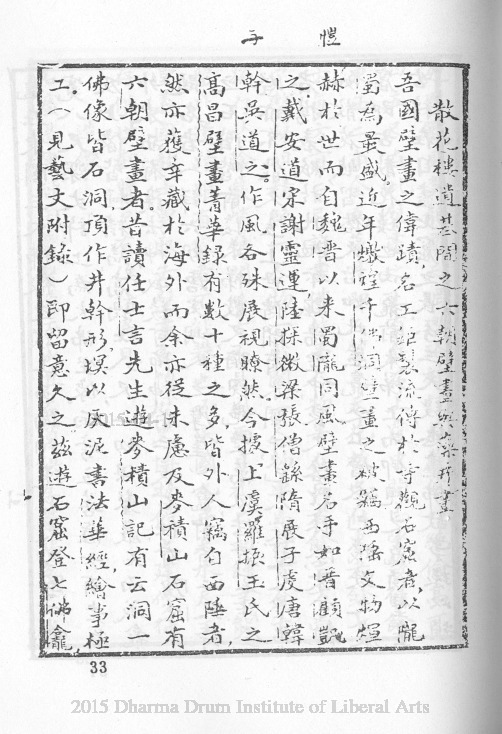 子愷
散花樓遺甚間之六朝壁畫與藻井畫
吾國壁畫之偉蹟,名工鉅製流傳於寺觀石窟者,以隴
蜀為最盛。近年燉煌千佛洞壁畫之被竊西陲文物煊
赫於世而自魏晋以来蜀隴同風壁畫名手如晋顧凱
之戴安道宋謝靈運,陸探微,梁張僧繇隋展子虔唐韓
幹吳道之。作風各殊展視瞭然今據上虞羅振玉氏之
高昌壁畫菁華錄有数十種之多,皆外人竊自西陲者,
然亦獲弆藏於海外而余亦從未慮及麥積山石窟有
六朝壁畫者。昔讀任士言先生遊麥積山記有云洞一
佛像皆石洞,頂作井幹形,塓以灰泥書法華經,繪事極
工。(見藝文附錄)即留意久之茲遊石窟登七佛龕,
33
2015 Dharma Drum Institute of Liberal Arts